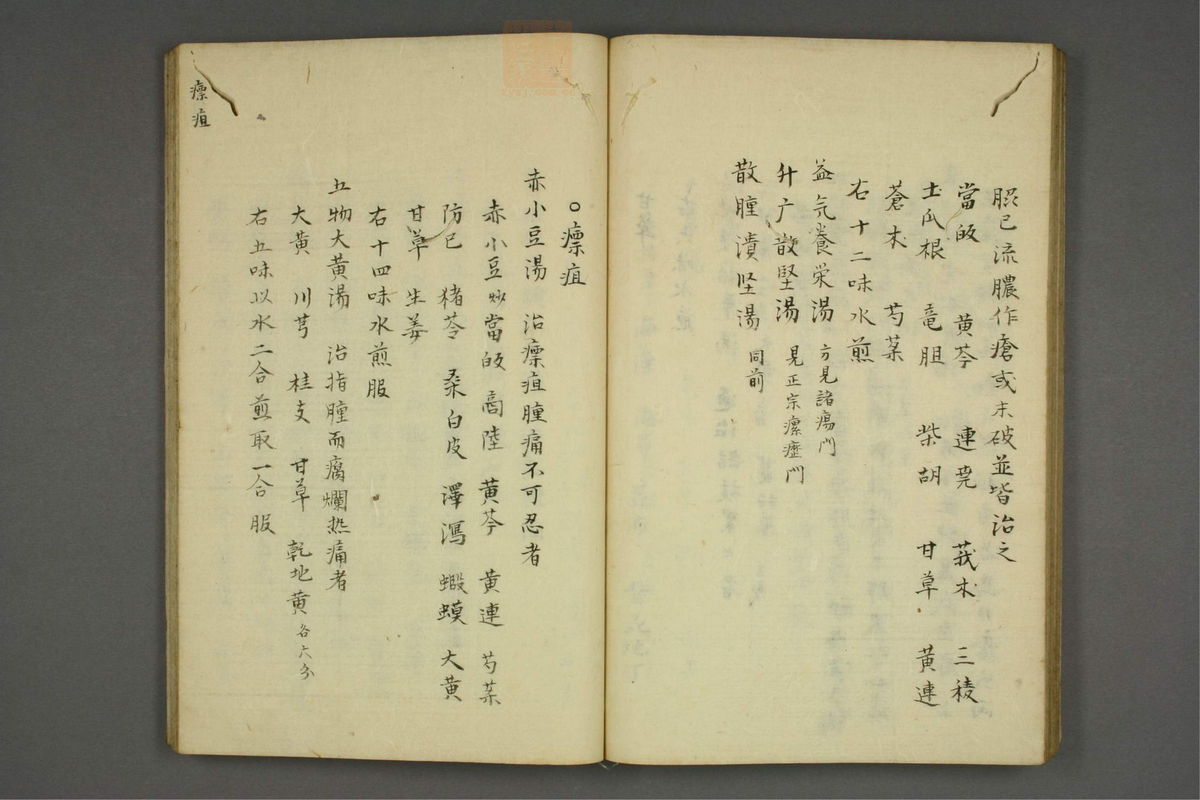 眤已流膿作瘡或未破並皆治之
當皈　黄芩　連堯　莪朮　三稜
土瓜根　竜胆　柴胡　甘草　黄連
蒼朮　芍薬
右十二味水煎
益気養栄湯　方見諸瘍門
升广散堅湯　見正宗瘰癧門
散腫潰坚湯　同前
○瘭疽
赤小豆湯　治瘭疽腫痛不可忍者
赤小豆炒　當皈　商陸　黄芩　黄連　芍薬
防已　猪苓　桑白皮　澤瀉　蝦蟆　大黄
甘草　生姜
右十四味水煎服
五物大黄湯　治指腫而腐爛热痛者
大黄　川芎　桂支　甘草　乾地黄各六分
右五味以水二合煎取一合服
瘭疽